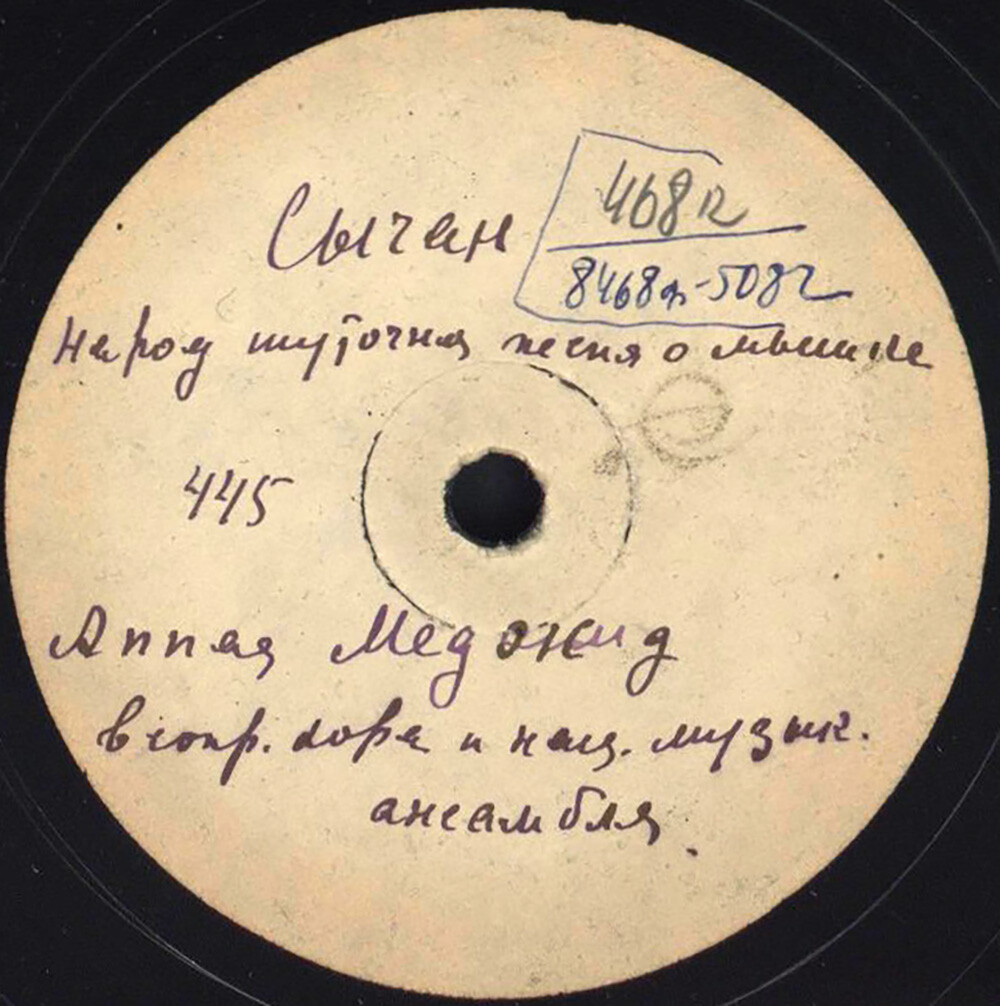 Сычан
468
8468
Народ шуточная песня о мышке
445
Аппаз Меджид
в сопр. хора и нац. музык.
ансамбля